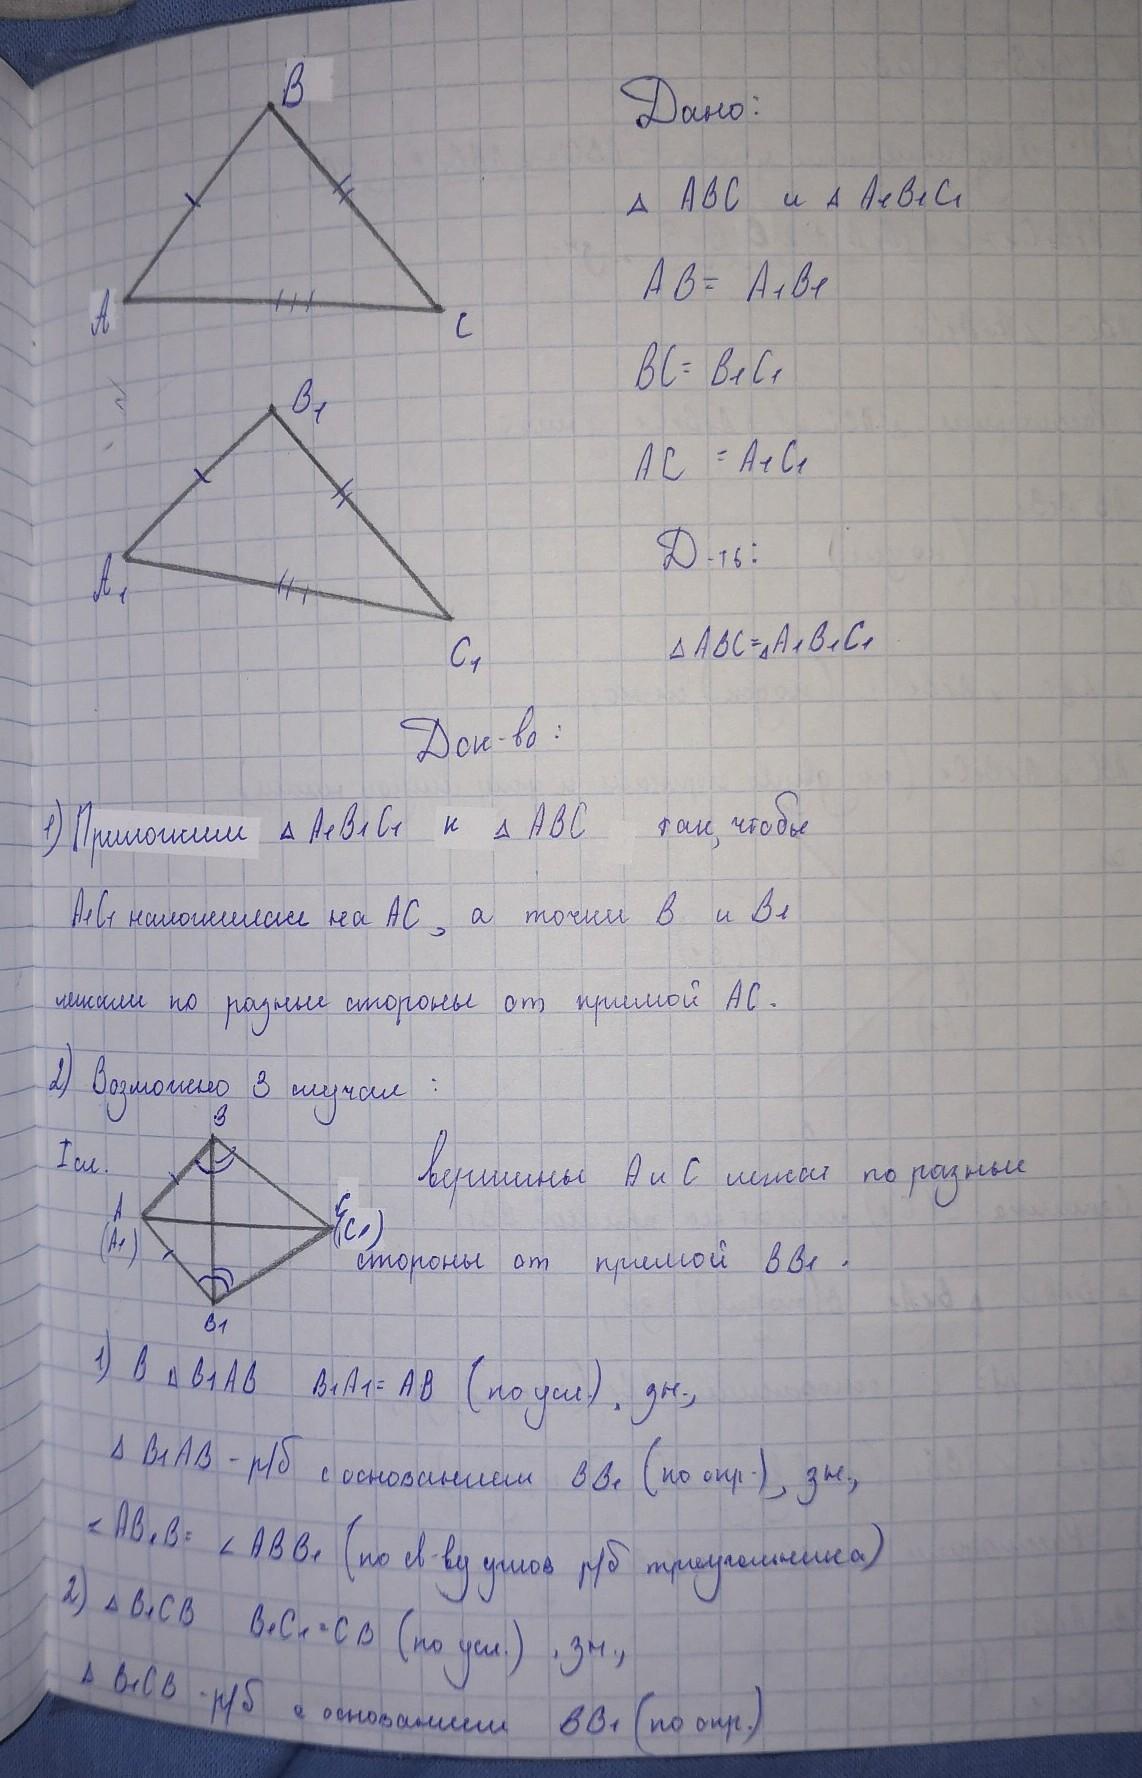 B
Дано:
△ ABC и △ A1B1C1
A
C
AB = A1B1
BC = B1C1
B1
AC = A1C1
Д-ть:
A1
C1
△ABC=△A1B1C1
Док-во:
1) Приложим △ A1B1C1 к △ ABC так, чтобы
A1C1 наложилась на AC, а точки B и B1
лежали по разные стороны от прямой AC.
2) Возможно 3 случая:
B
I сл.
A
(A1)
C
(C1)
B1
вершины A и C лежат по разные
стороны от прямой BB1.
1) В △ B1AB B1A1 = AB (по усл.), зн.,
△ B1AB - р/б с основанием BB1 (по опр.), зн.,
∠ AB1B = ∠ ABB1 (по св-ву углов р/б треугольника)
2) △ B1CB B1C1 = CB (по усл.), зн.,
△ B1CB - р/б с основанием BB1 (по опр.)